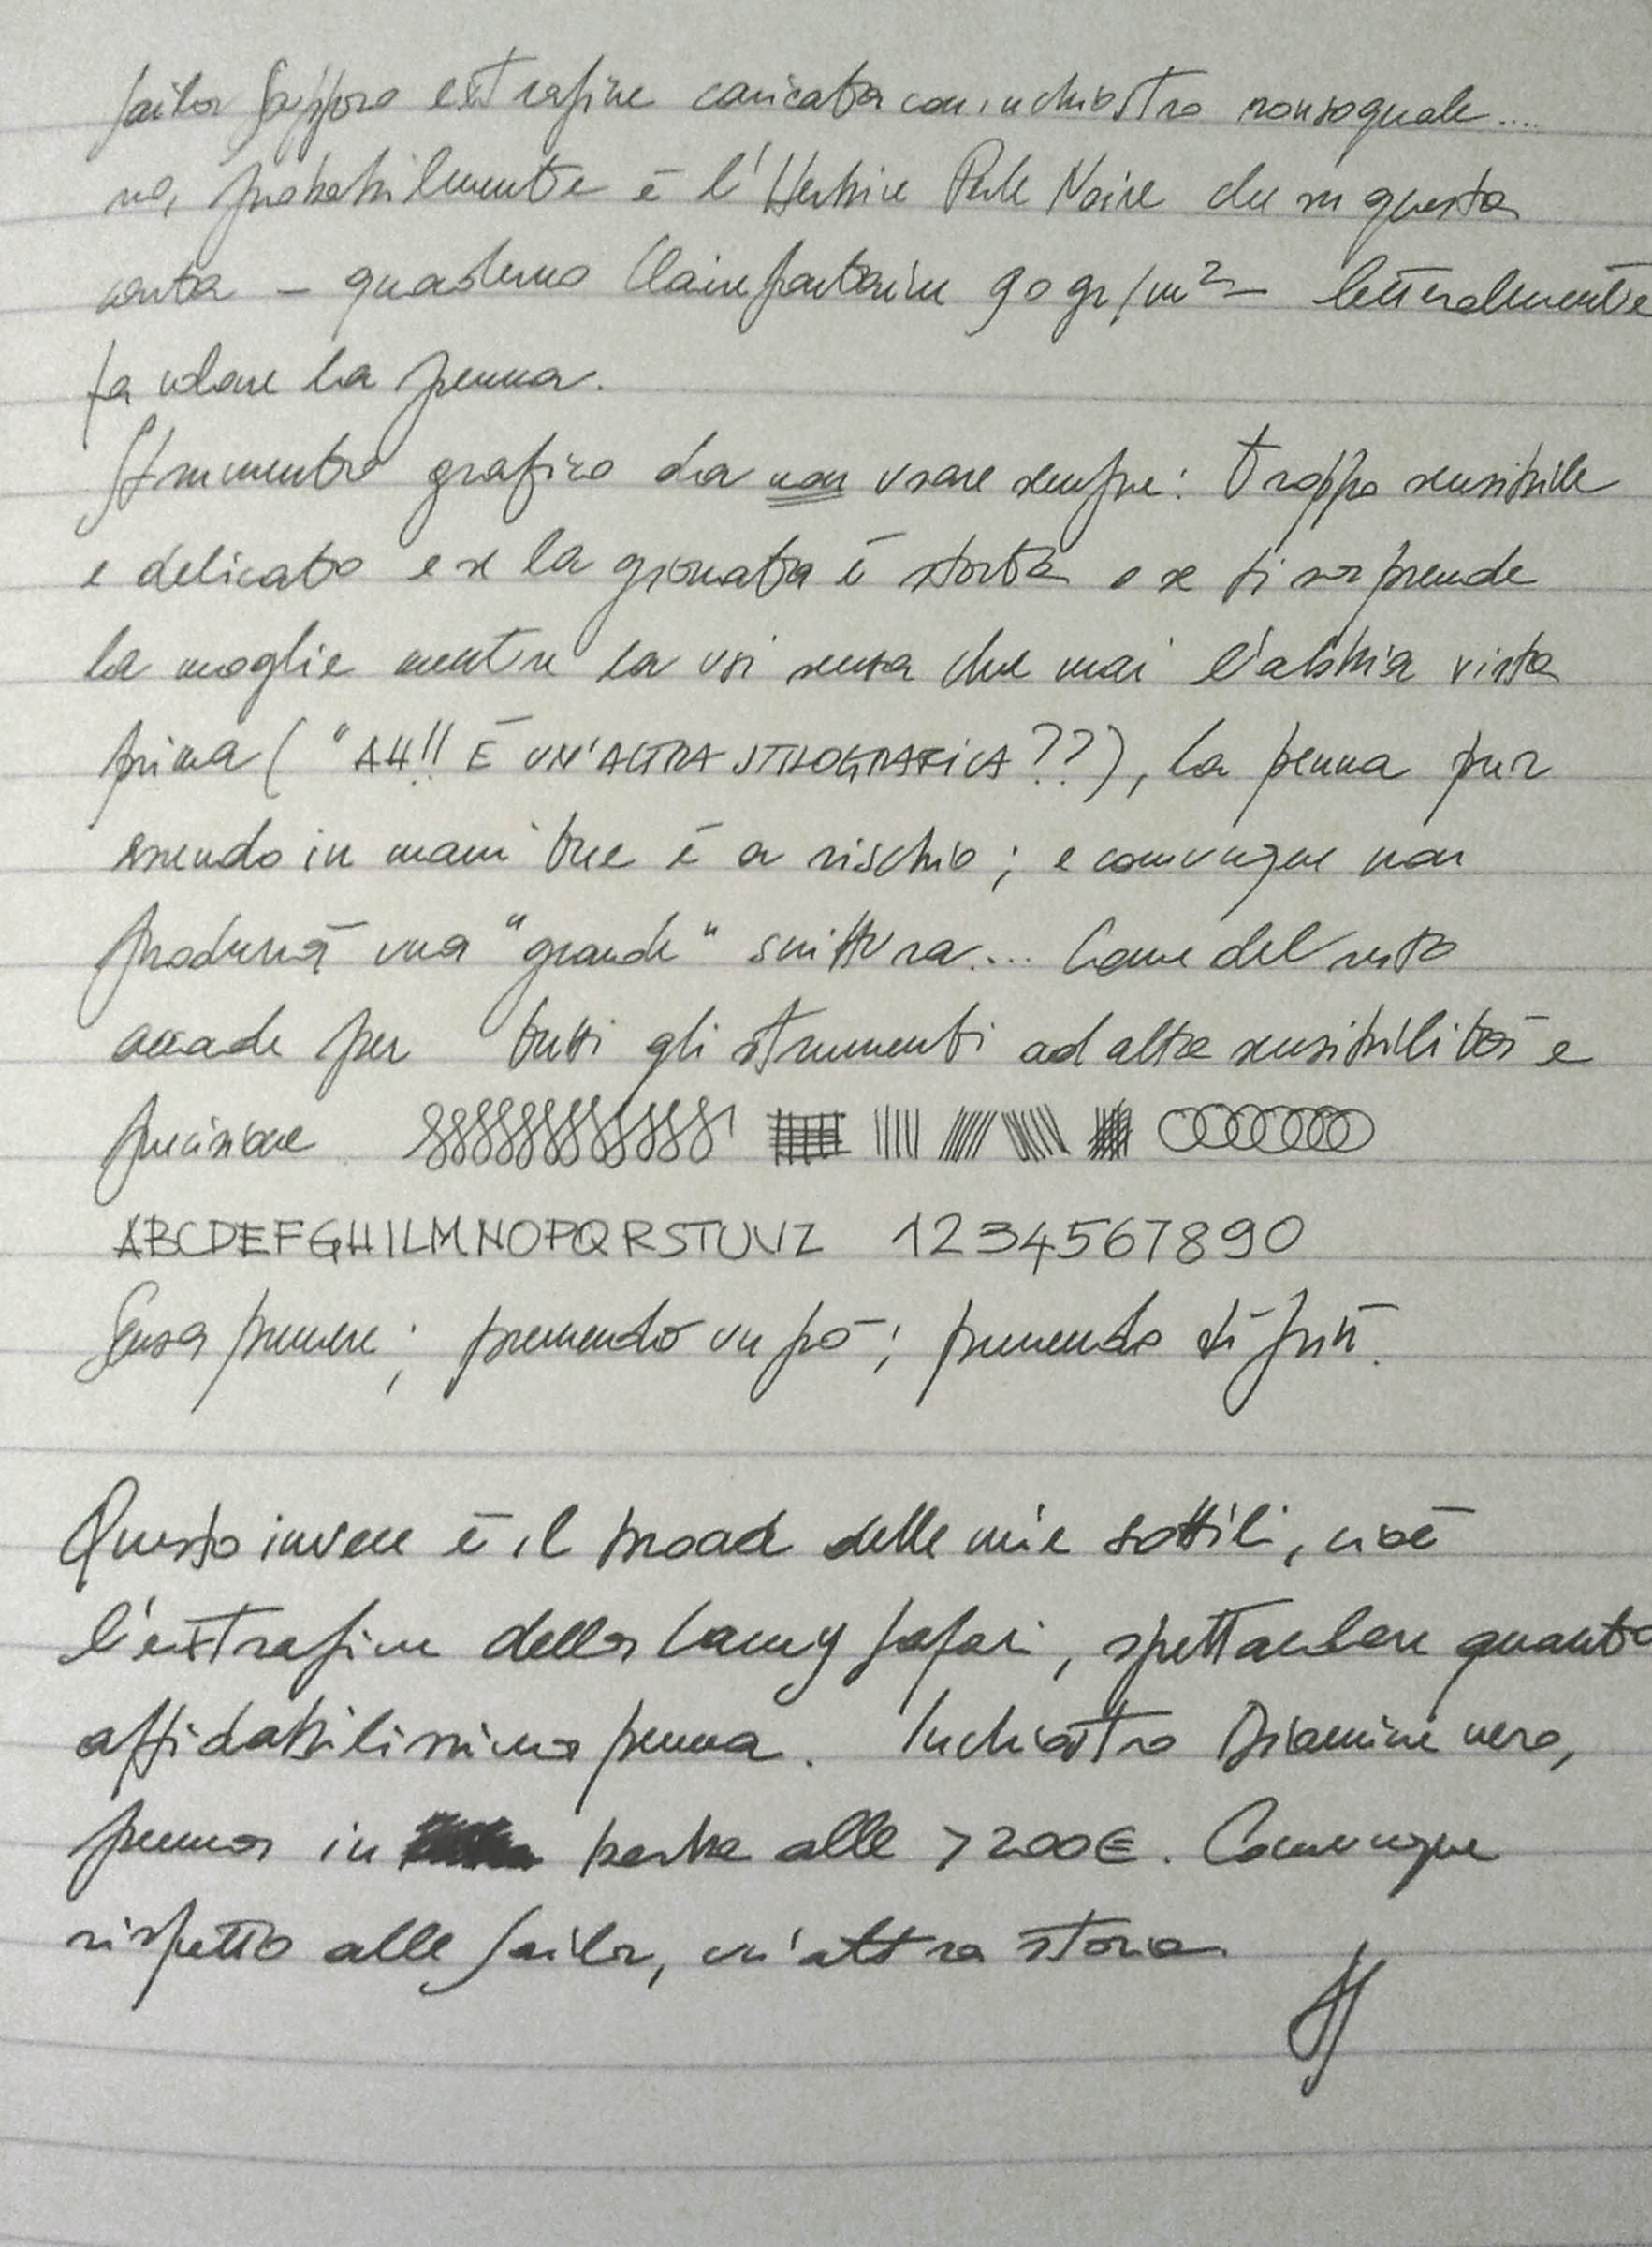 Sailor Sapporo extrafine caricata con inchiostro nonsoquale....
no, probabilmente è l'Herbin Perle Noire che su questa
carta - quaderno Clairefontaine 90 gr/m² - letteralmente
fa volare la penna.
Strumento grafico da non usare sempre: troppo sensibile
e delicato e se la giornata è storta o se ti sorprende
la moglie mentre la usi senza che mai l'abbia vista
prima ("AH!! È UN'ALTRA STILOGRAFICA??), la penna pur
essendo in mani tue è a rischio; e comunque non
produrrà una "grande" scrittura.... Come del resto
accade per tutti gli strumenti ad alta sensibilità e
precisione
ABCDEFGHILMNOPQRSTUVZ 1234567890
Senza premere; premendo un pò; premendo di più.
Questo invece è il broad delle mie sottili, cioè
l'extrafine della Lamy Safari, spettacolare quanto
affidabilissima penna. Inchiostro Diamine nero,
penna in barba alle >200€. Comunque
rispetto alle Sailor, un'altra storia.